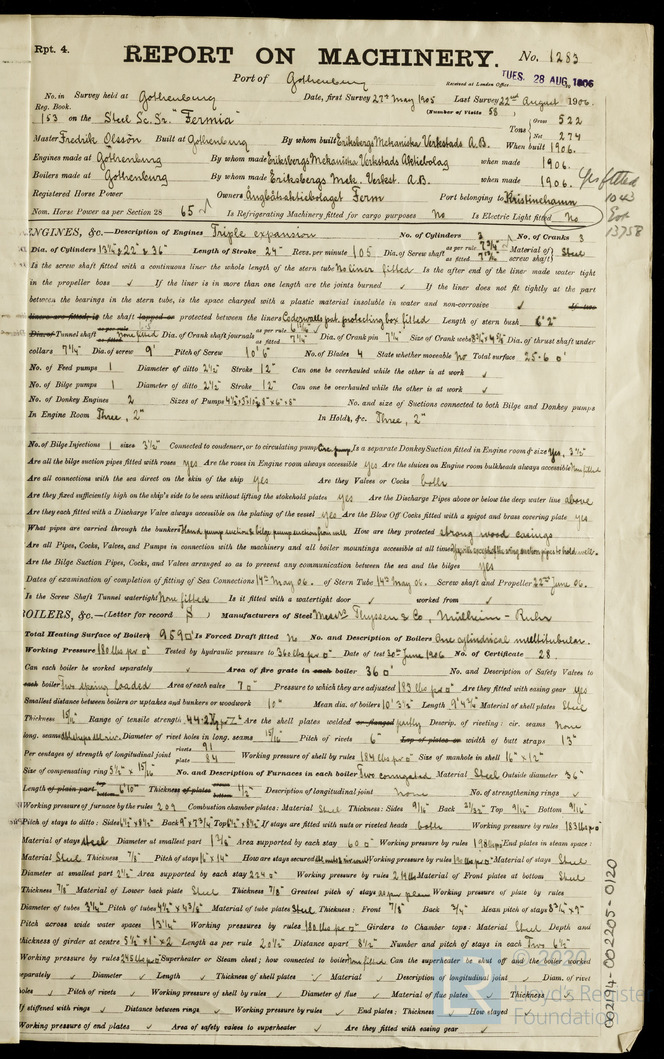 Rpt. 4.
REPORT ON MACHINERY.
No. 1283
Port of Gothenburg
Received at London Office TUES. 28 AUG. 1906
No. in Survey held at Gothenburg Date, first Survey 27th May 1905 Last Survey 22nd August 1906.
Reg. Book. (Number of Visits 58)
153 on the Steel Sc. Sr. "Fermia" Tons Gross 522 Net 274
Master Fredrik Olsson Built at Gothenburg By whom built Eriksbergs Mekaniska Verkstads A.B. When built 1906.
Engines made at Gothenburg By whom made Eriksbergs Mekaniska Verkstads Aktiebolag when made 1906.
Boilers made at Gothenburg By whom made Eriksbergs Mek. Verkst. A.B. when made 1906.
Yes fitted
Registered Horse Power Owners Ångbåtsaktiebolaget Ferm Port belonging to Kristinehamn
Nom. Horse Power as per Section 28 65 Is Refrigerating Machinery fitted for cargo purposes No Is Electric Light fitted No
13758
ENGINES, &c.—Description of Engines Triple expansion No. of Cylinders 3 No. of Cranks 3
Dia. of Cylinders 13¾" 22" & 36" Length of Stroke 24" Revs. per minute 105 Dia. of Screw shaft as per rule as fitted Material of screw shaft Steel
Is the screw shaft fitted with a continuous liner the whole length of the stern tube No liner fitted Is the after end of the liner made water tight
in the propeller boss If the liner is in more than one length are the joints burned If the liner does not fit tightly at the part
between the bearings in the stern tube, is the space charged with a plastic material insoluble in water and non-corrosive If two
liners are fitted, is the shaft lapped or protected between the liners Cederwalls pat. protecting box fitted Length of stern bush 6' 2"
Dia. of Tunnel shaft as per rule as fitted None fitted Dia. of Crank shaft journals as per rule as fitted 7¾" Dia. of Crank pin 7¾" Size of Crank webs Dia. of thrust shaft under
collars 7¾" Dia. of screw 9' Pitch of Screw 10' 6" No. of Blades 4 State whether moveable No Total surface 25.6 □'
No. of Feed pumps 1 Diameter of ditto 2½" Stroke 12" Can one be overhauled while the other is at work
No. of Bilge pumps 1 Diameter of ditto 2½" Stroke 12" Can one be overhauled while the other is at work
No. of Donkey Engines 2 Sizes of Pumps No. and size of Suctions connected to both Bilge and Donkey pumps
In Engine Room Three, 2" In Holds, &c. Three, 2"
No. of Bilge Injections 1 sizes 3½" Connected to condenser, or to circulating pump Circ. pump Is a separate Donkey Suction fitted in Engine room & size Yes, 3½"
Are all the bilge suction pipes fitted with roses yes Are the roses in Engine room always accessible yes Are the sluices on Engine room bulkheads always accessible None fitted
Are all connections with the sea direct on the skin of the ship yes Are they Valves or Cocks both
Are they fixed sufficiently high on the ship's side to be seen without lifting the stokehold plates yes Are the Discharge Pipes above or below the deep water line above
Are they each fitted with a Discharge Valve always accessible on the plating of the vessel yes Are the Blow Off Cocks fitted with a spigot and brass covering plate yes
What pipes are carried through the bunkers Hand pump suction & bilge pump suction from well How are they protected strong wood casings
Are all Pipes, Cocks, Valves, and Pumps in connection with the machinery and all boiler mountings accessible at all times Yes, with except of the wing suction pipes to hold well
Are the Bilge Suction Pipes, Cocks, and Valves arranged so as to prevent any communication between the sea and the bilges yes
Dates of examination of completion of fitting of Sea Connections 14th May 06. of Stern Tube 14th May 06. Screw shaft and Propeller 22nd June 06.
Is the Screw Shaft Tunnel watertight None fitted Is it fitted with a watertight door worked from
BOILERS, &c.—(Letter for record S) Manufacturers of Steel Messrs Thyssen & Co, Mülheim-Ruhr
Total Heating Surface of Boilers 959 □' Is Forced Draft fitted No No. and Description of Boilers One cylindrical multitubular.
Working Pressure 180 lbs pr □" Tested by hydraulic pressure to 360 lbs pr □" Date of test 30th June 1906 No. of Certificate 28
Can each boiler be worked separately Area of fire grate in each boiler 36 □' No. and Description of Safety Valves to
each boiler Two spring loaded Area of each valve 7 □" Pressure to which they are adjusted 183 lbs pr □" Are they fitted with easing gear yes
Smallest distance between boilers or uptakes and bunkers or woodwork 10" Mean dia. of boilers 10' 3½" Length 9' Material of shell plates Steel
Thickness 15/16" Range of tensile strength Are the shell plates welded or flanged partly Descrip. of riveting: cir. seams None
long. seams Diameter of rivet holes in long. seams 15/16" Pitch of rivets 6" Lap of plates or width of butt straps 13"
Per centages of strength of longitudinal joint rivets 91 plate 84 Working pressure of shell by rules 184 lbs pr □" Size of manhole in shell 16" x 12"
Size of compensating ring No. and Description of Furnaces in each boiler Two corrugated Material Steel Outside diameter 36"
Length of plain part top bottom 6'10" Thickness of plates top bottom 1/2" Description of longitudinal joint None No. of strengthening rings
Working pressure of furnace by the rules 209 Combustion chamber plates: Material Steel Thickness: Sides 9/16" Back Top 9/16" Bottom 9/16"
Pitch of stays to ditto: Sides Back Top If stays are fitted with nuts or riveted heads both Working pressure by rules 183 lbs pr □"
Material of stays Steel Diameter at smallest part Area supported by each stay 60 □" Working pressure by rules 198 lbs pr □" End plates in steam space:
Material Steel Thickness 7/8" Pitch of stays 16" x 14" How are stays secured Working pressure by rules Material of stays Steel
Diameter at smallest part 2½" Area supported by each stay 224 □" Working pressure by rules Material of Front plates at bottom Steel
Thickness 7/8" Material of Lower back plate Steel Thickness 7/8" Greatest pitch of stays as per plan Working pressure of plate by rules
Diameter of tubes 3¼" Pitch of tubes Material of tube plates Steel Thickness: Front 7/8" Back 3/4" Mean pitch of stays
Pitch across wide water spaces 13¼" Working pressures by rules 180 lbs pr □" Girders to Chamber tops: Material Steel Depth and
thickness of girder at centre Length as per rule 20½" Distance apart 8½" Number and pitch of stays in each Two 6½"
Working pressure by rules 245 lbs pr □" Superheater or Steam chest; how connected to boiler None fitted Can the superheater be shut off and the boiler worked
separately Diameter Length Thickness of shell plates Material Description of longitudinal joint Diam. of rivet
holes Pitch of rivets Working pressure of shell by rules Diameter of flue Material of flue plates Thickness
If stiffened with rings Distance between rings Working pressure by rules End plates: Thickness How stayed
Working pressure of end plates Area of safety valves to superheater Are they fitted with easing gear
© 2020
LR
Lloyd's Register
Foundation
002194-002205-0120